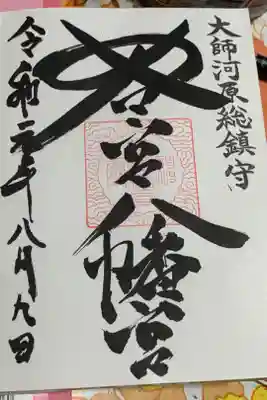 大師河原総鎮守
若宮八幡宮
令和元年八月九日